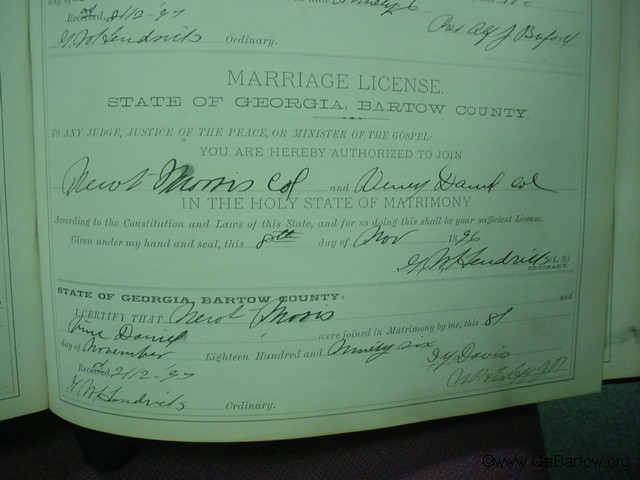 Received, 2/12-'97
G.W. Hendricks Ordinary.
MARRIAGE LICENSE.
STATE OF GEORGIA, BARTOW COUNTY.
TO ANY JUDGE, JUSTICE OF THE PEACE, OR MINISTER OF THE GOSPEL:
YOU ARE HEREBY AUTHORIZED TO JOIN
Newt Morris Col and Viney Daniel col
IN THE HOLY STATE OF MATRIMONY
According to the Constitution and Laws of this State, and for so doing this shall be your sufficient License.
Given under my hand and seal, this 8th day of Nov 1896
G.W. Hendricks (L.S.)
ORDINARY.
STATE OF GEORGIA, BARTOW COUNTY:
I CERTIFY THAT Newt Morris and
Vine Daniel were joined in Matrimony by me, this 8
day of November Eighteen Hundred and Ninety six
Received, 2/12-97 Davis
G W Hendricks Ordinary.
©www.GaBartow.org